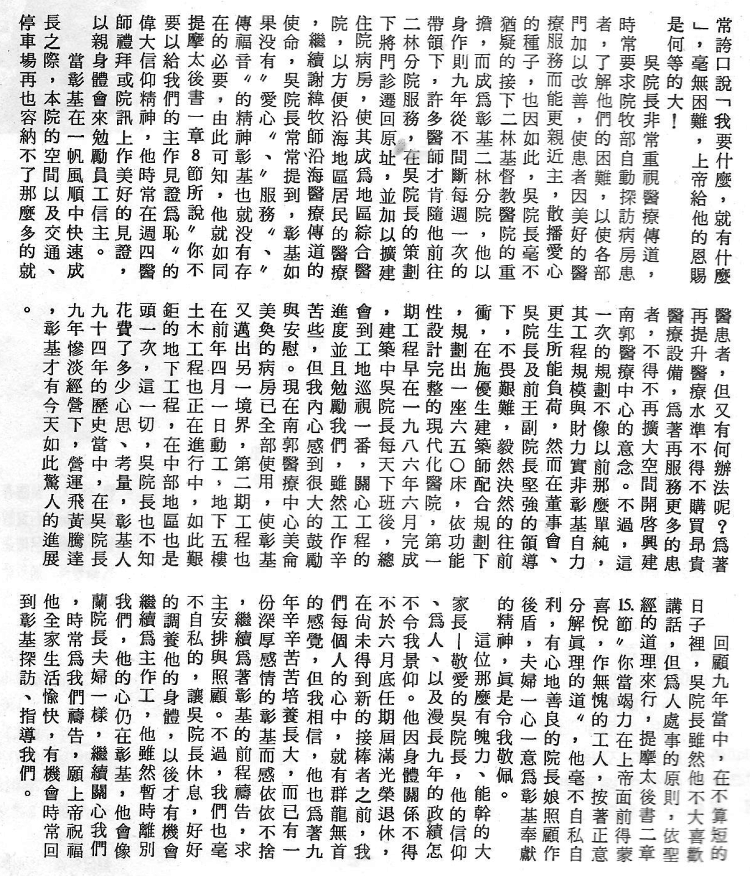 常誇口說「我要什麼，就有什麼
」，毫無困難，上帝給他的恩賜
是何等的大！
吳院長非常重視醫療傳道，
時常要求院牧部自動探訪病房患
者，了解他們的困難，以使各部
門加以改善，使患者因美好的醫
療服務而能更親近主，散播愛心
的種子，也因如此，吳院長毫不
猶疑的接下二林基督教醫院的重
擔，而成爲彰基二林分院，他以
身作則九年從不間斷每週一次的
帶領下，許多醫師才肯隨他前往
二林分院服務，在吳院長的策劃
下將門診遷回原址，並加以擴建
住院病房，使其成爲地區綜合醫
院，以方便沿海地區居民的醫療
，繼續謝緯牧師沿海醫療傳道的
使命，吳院長常常提到，彰基如
果没有〝愛心〞、〝服務〞、〝
傳福音〞的精神彰基也就没有存
在的必要，由此可知，他就如同
提摩太後書一章8節所說〝你不
要以給我們的主作見證爲恥〞的
偉大信仰精神，他時常在週四醫
師禮拜或院訊上作美好的見證，
以親身體會來勉勵員工信主。
當彰基在一帆風順中快速成
長之際，本院的空間以及交通、
停車場再也容納不了那麼多的就
醫患者，但又有何辦法呢？爲著
再提升醫療水準不得不購買昂貴
醫療設備，爲著再服務更多的患
者，不得不再擴大空間開啓興建
南郭醫療中心的意念。不過，這
一次的規劃不像以前那麼單純，
其工程規模與財力實非彰基自力
更生所能負荷，然而在董事會、
吳院長及前王副院長堅強的領導
下，不畏艱難，毅然決然的往前
衝，在施優生建築師配合規劃下
，規劃出一座六五〇床，依功能
性設計完整的現代化醫院，第一
期工程早在一九八六年六月完成
，建築中吳院長每天下班後，總
會到工地巡視一番，關心工程的
進度並且勉勵我們，雖然工作辛
苦些，但我內心感到很大的鼓勵
與安慰。現在南郭醫療中心美侖
美奐的病房已全部使用，使彰基
又邁出另一境界，第二期工程也
在前年四月一日動工，地下五樓
土木工程也正在進行中，如此艱
鉅的地下工程，在中部地區也是
頭一次，這一切，吳院長也不知
花費了多少心思、考量，彰基人
九十四年的歷史當中，在吳院長
九年慘淡經營下，營運飛黃騰達
，彰基才有今天如此驚人的進展
。
回顧九年當中，在不算短的
日子裡，吳院長雖然他不大喜歡
講話，但爲人處事的原則，依聖
經的道理來行，提摩太後書二章
15.節〝你當竭力在上帝面前得蒙
喜悅，作無愧的工人，按著正意
分解眞理的道〞，他毫不自私自
利，有心地善良的院長娘照顧作
後盾，夫婦一心一意爲彰基奉獻
的精神，眞是令我敬佩。
這位那麼有魄力、能幹的大
家長—敬愛的吳院長，他的信仰
、爲人、以及漫長九年的政績怎
不令我景仰。他因身體關係不得
不於六月底任期屆滿光榮退休，
在尚未得到新的接棒者之前，我
們每個人的心中，就有群龍無首
的感覺，但我相信，他也爲著九
年辛辛苦苦培養長大，而已有一
份深厚感情的彰基而感依依不捨
，繼續爲著彰基的前程禱告，求
主安排與照顧。不過，我們也毫
不自私的，讓吳院長休息，好好
的調養他的身體，以後才有機會
繼續爲主作工，他雖然暫時離別
我們，他的心仍在彰基，他會像
蘭院長夫婦一樣，繼續關心我們
，時常爲我們禱告，願上帝祝福
他全家生活愉快，有機會時常回
到彰基探訪、指導我們。